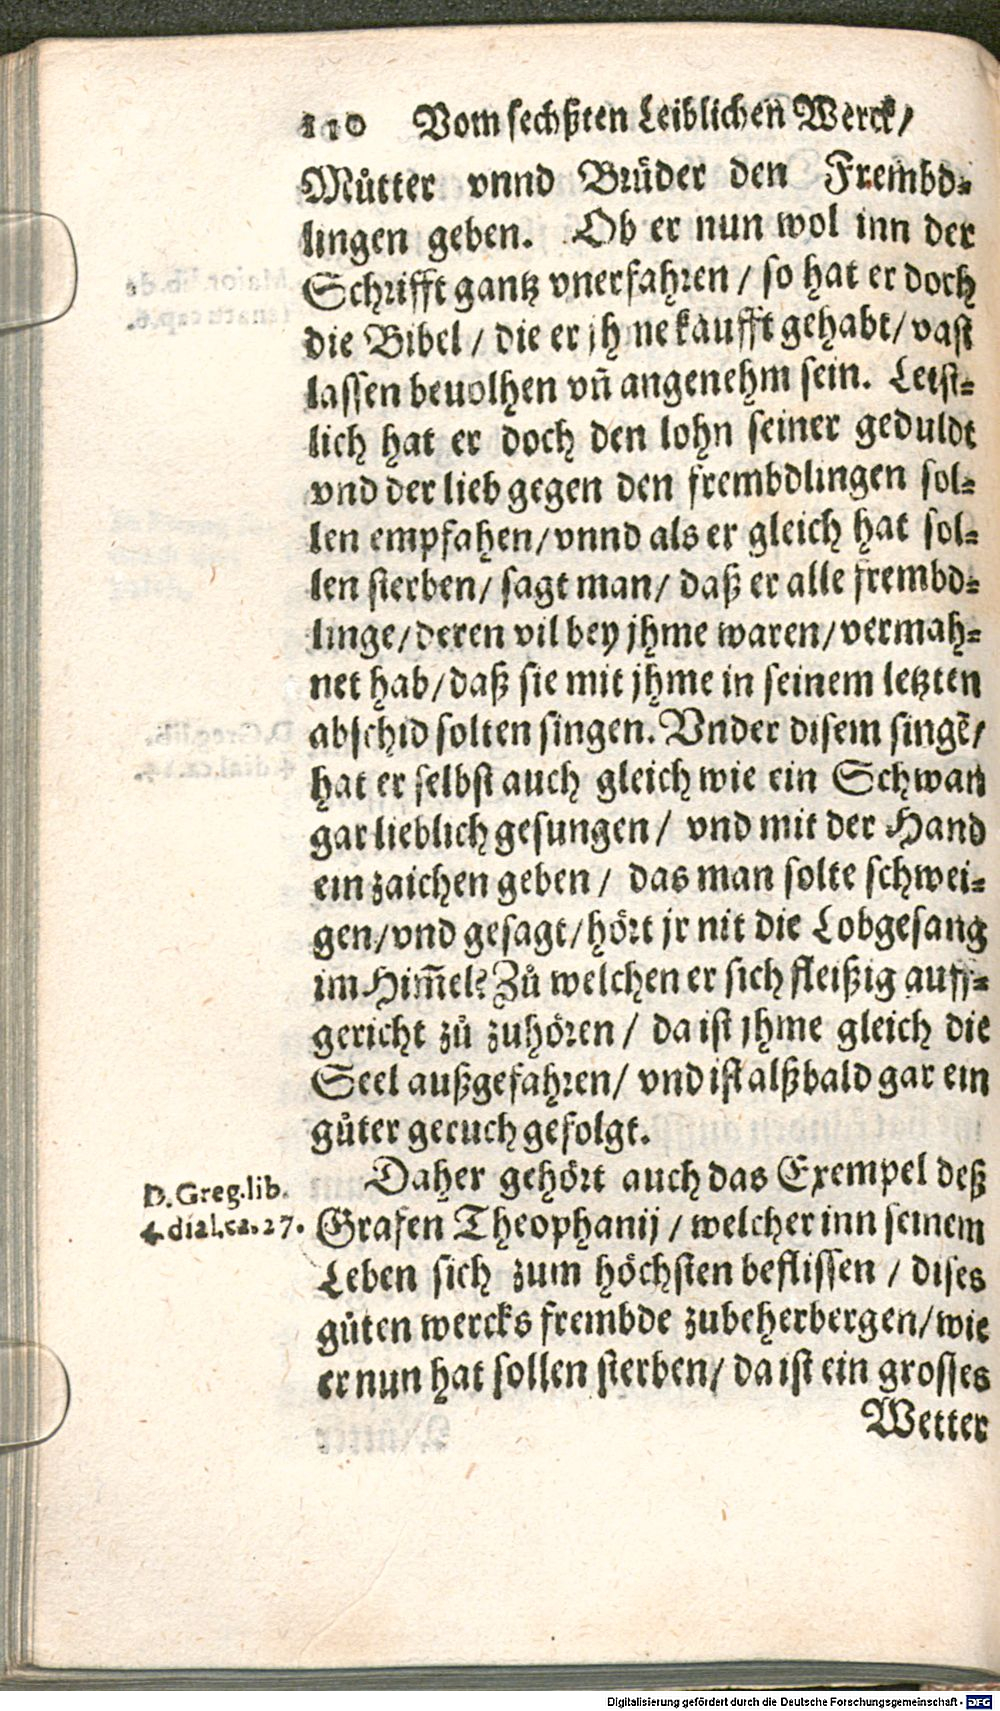 110 Vom sechßten Leiblichen Werck/
Můtter vnnd Brüder den Frembd-
lingen geben. Ob er nun wol inn der
Schrifft gantz vnerfahren / so hat er doch
die Bibel / die er jhme kaufft gehabt / vast
lassen beuolhen vñ angenehm sein. Letst-
lich hat er doch den lohn seiner gedult
vnd der lieb gegen den frembdlingen sol-
len empfahen/ vnnd als er gleich hat sol-
len sterben/ sagt man/ daß er alle frembd-
linge/ deren vil bey jhme waren/ vermah-
net hab/ daß sie mit jhme in seinem letzten
abschid solten singen. Vnder disem singẽ/
hat er selbst auch gleich wie ein Schwan
gar lieblich gesungen/ vnd mit der Hand
ein zaichen geben / das man solte schwei-
gen/ vnd gesagt/ hört jr nit die Lobgesang
im Him̃el? Zů welchen er sich fleißig auff-
gericht zů zuhören / da ist jhme gleich die
Seel außgefahren/ vnd ist alßbald gar ein
gůter geruch gefolgt.
Daher gehört auch das Exempel deß
D. Greg. lib.
4. dial. ca. 27.
Grafen Theophanij / welcher inn seinem
Leben sich zum höchsten beflissen / dises
gůten wercks frembde zubeherbergen/ wie
er nun hat sollen sterben/ da ist ein grosses
Wetter
Digitalisierung gefördert durch die Deutsche Forschungsgemeinschaft - DFG